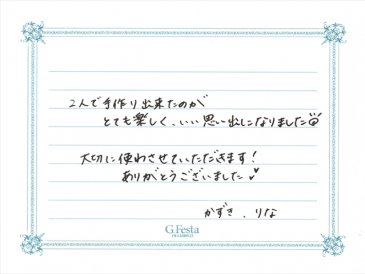 2人で手作り出来たのが
とても楽しく、いい思い出になりました
大切に使わさせていただきます!
ありがとうございました
かずき、りな
G.Festa